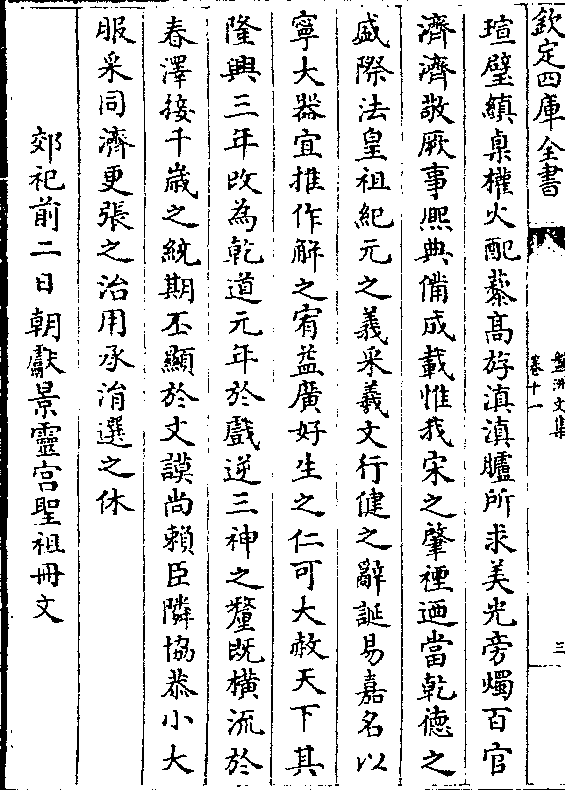 欽定四庫全書
盤洲文集
卷十一
三
瑄璧縝㮚權火配藜高㳺滇滇臚所求美光旁燭百官
濟濟敬厥事熈典備成載惟我宋之肇禋廼當乾德之
盛際法皇祖紀元之義采羲文行健之辭誕易嘉名以
寧大器宜推作解之宥益廣好生之仁可大赦天下其
隆興三年改為乾道元年於戲逆三神之釐既横流於
春澤接千歲之統期丕顯於文謨尚賴臣隣協恭小大
服采同濟更張之治用承洧選之休
郊祀前二日朝獻景靈宫聖祖冊文